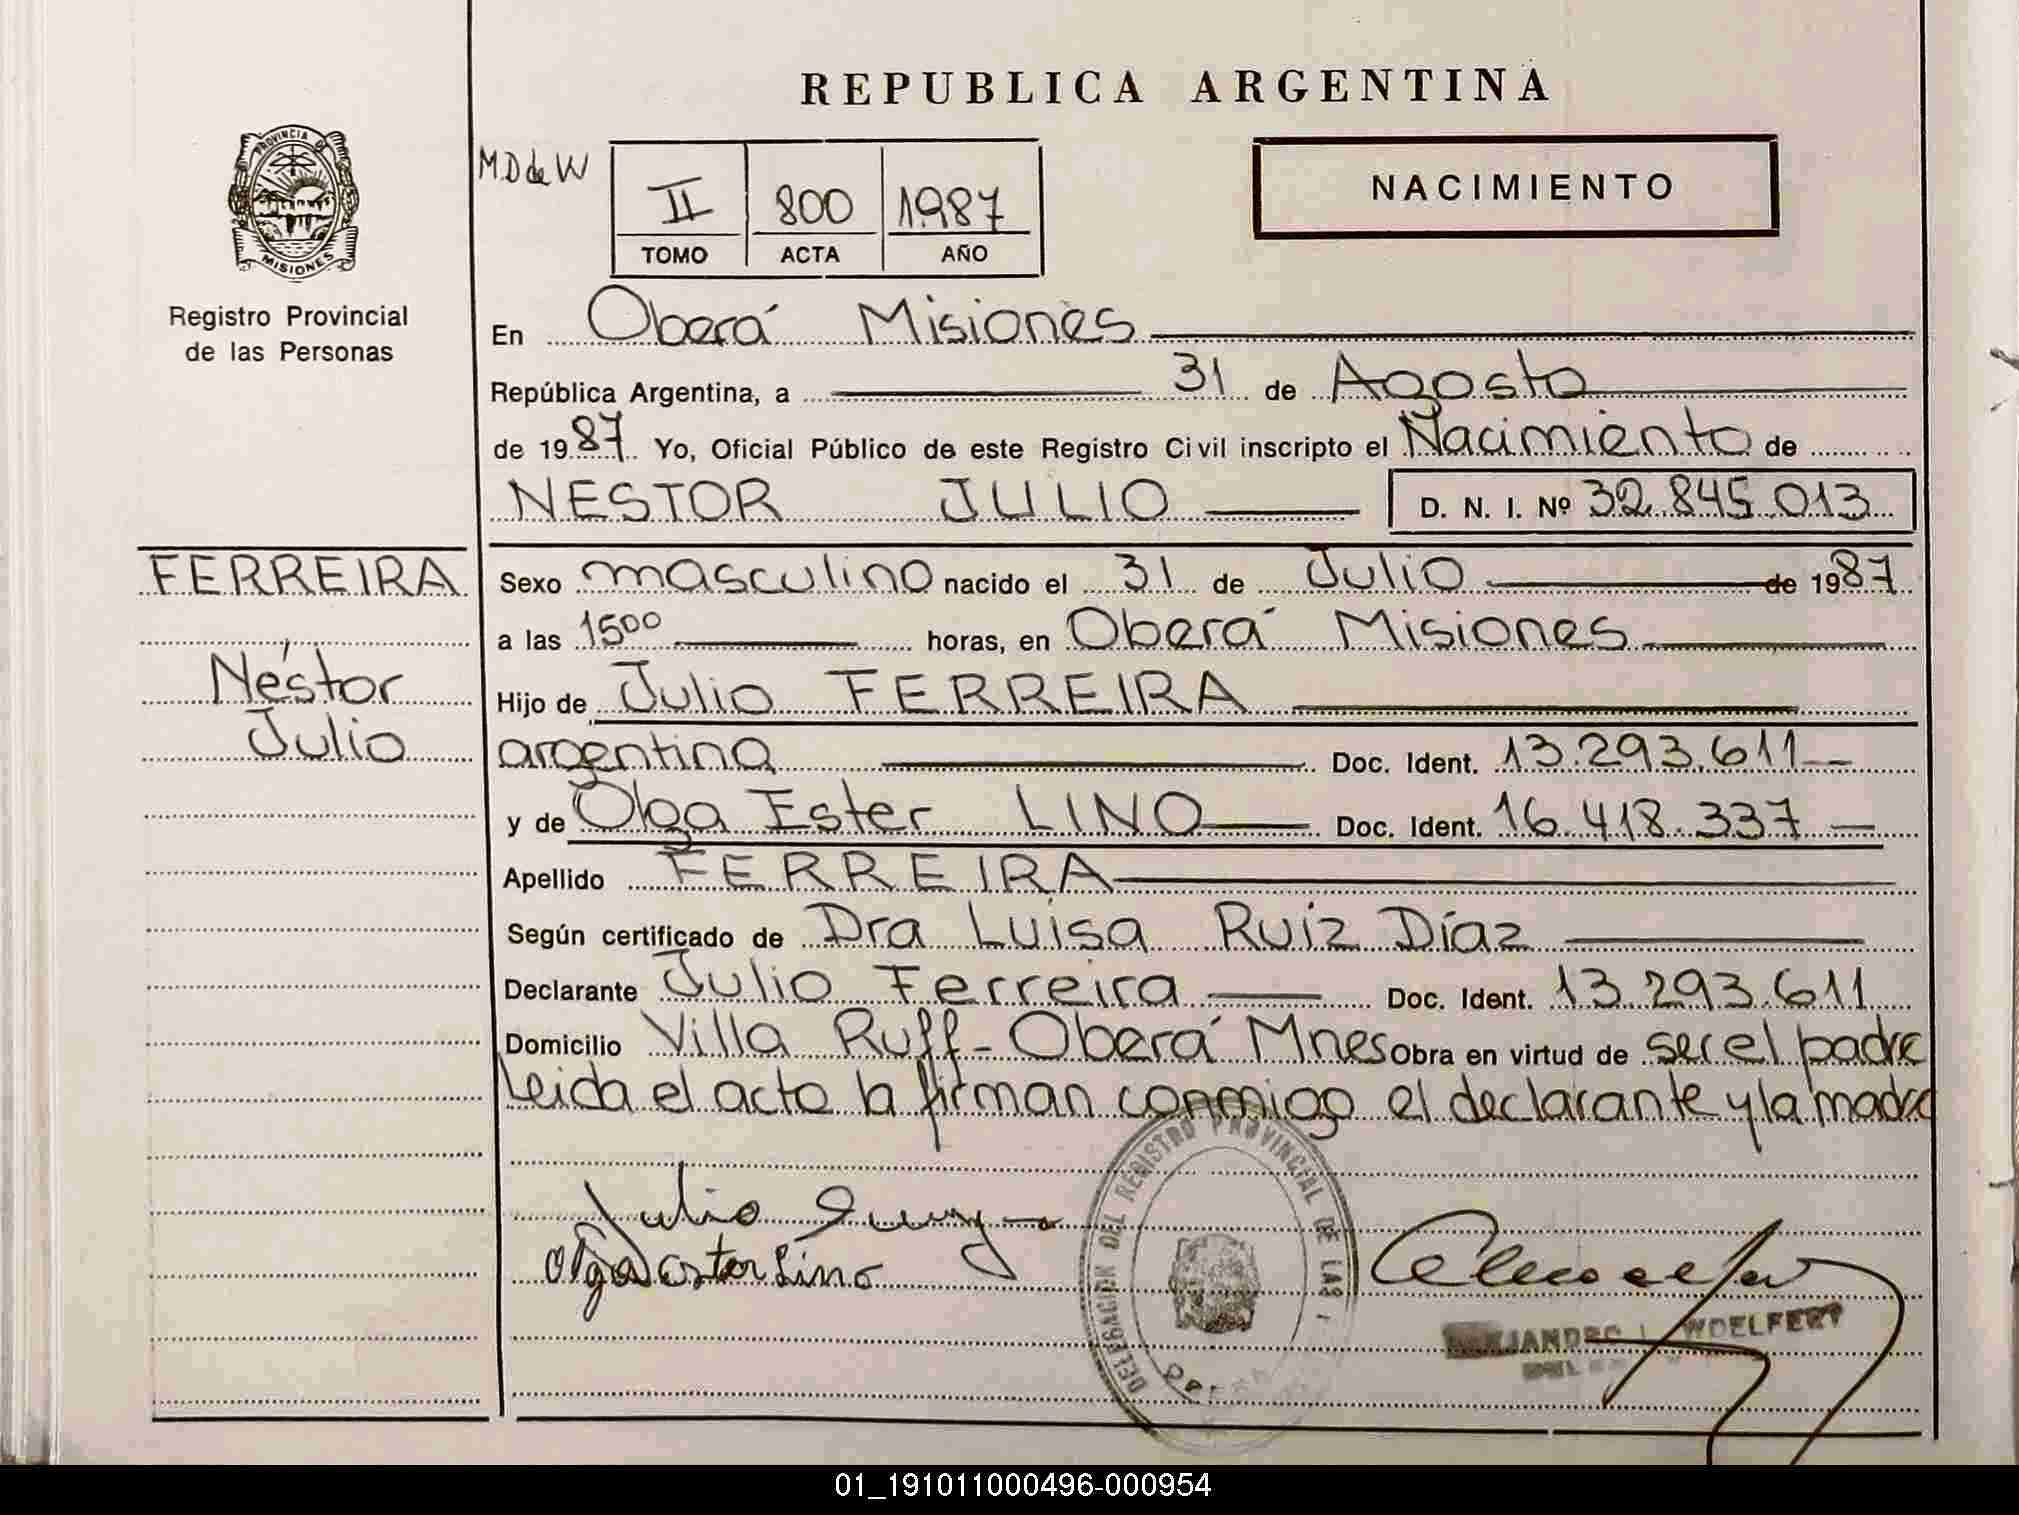 REPUBLICA ARGENTINA
PROVINCIA DE
MISIONES
Registro Provincial
de las Personas
M.D de W
II 800 1987
TOMO ACTA AÑO
NACIMIENTO
En Oberá Misiones
República Argentina, a 31 de Agosto
de 1987 Yo, Oficial Público de este Registro Civil inscripto el Nacimiento de
NESTOR JULIO D. N. I. Nº 32.845.013
FERREIRA
Néstor
Julio
Sexo masculino nacido el 31 de Julio de 1987
a las 1500 horas, en Oberá Misiones
Hijo de Julio FERREIRA
argentina Doc. Ident. 13.293.611
y de Olga Ester LINO Doc. Ident. 16.418.337
Apellido FERREIRA
Según certificado de Dra Luisa Ruiz Díaz
Declarante Julio Ferreira Doc. Ident. 13.293.611
Domicilio Villa Ruff - Oberá Mnes Obra en virtud de ser el padre
Leida el acta la firman conmigo el declarante y la madre
Julio
Olga ester Lino
DELEGACION DEL REGISTRO PROVINCIAL DE LAS
WOELFERT
01_191011000496-000954